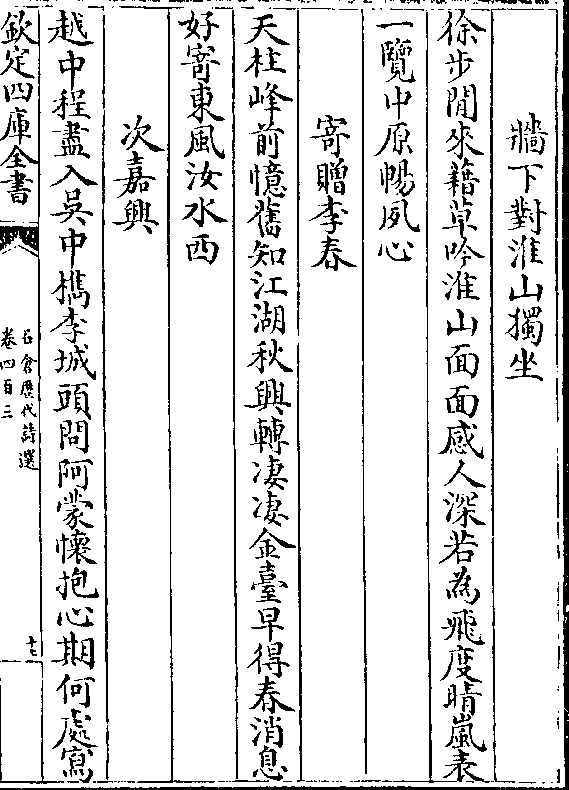 牆下對淮山獨坐
徐步閒來藉草吟淮山面面感人深若為飛度晴嵐表
一覽中原暢夙心
寄贈李春
天柱峰前憶舊知江湖秋興轉凄凄金臺早得春消息
好寄東風汝水西
次嘉興
越中程盡入吳中檇李城頭問阿蒙懷抱心期何處寫
欽定四庫全書
石倉歷代詩選
卷四百三
十七